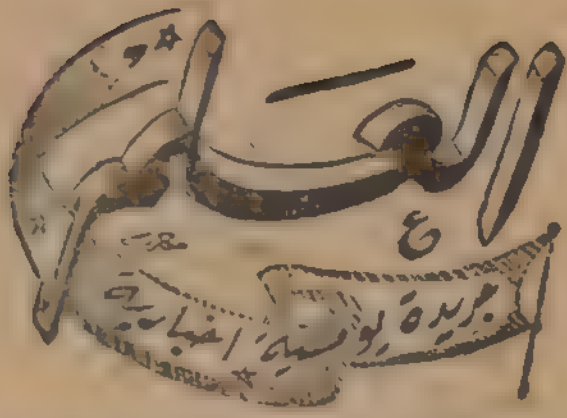 العلم
جريدة يومية إخبارية